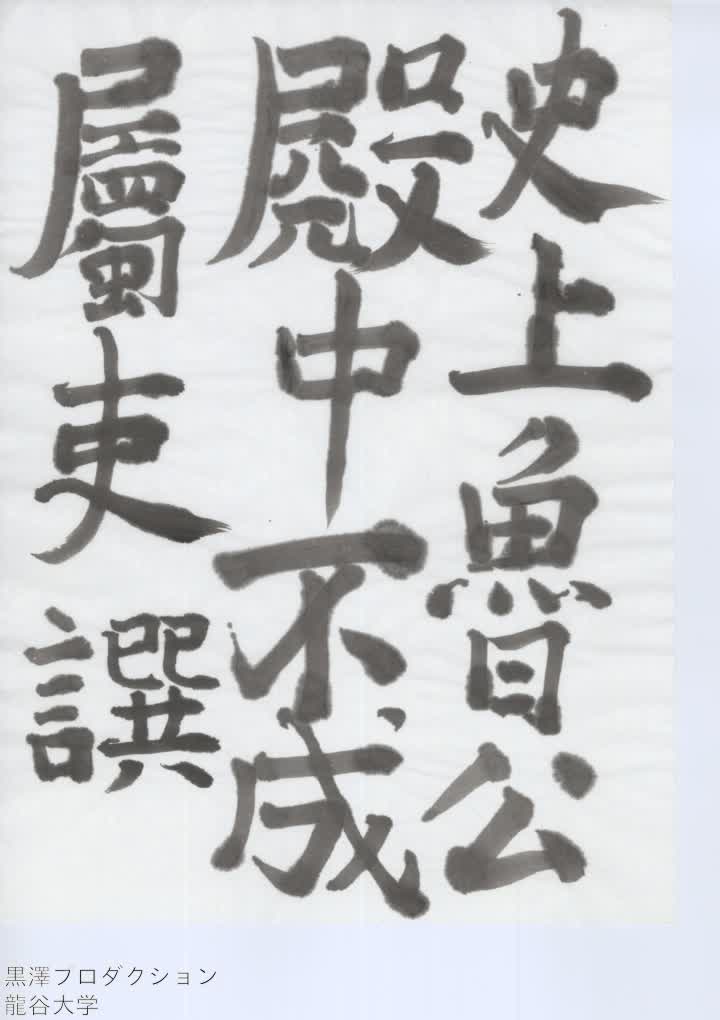 史上魯公
殿中不成
屬吏譔
黒澤プロダクション
龍谷大学